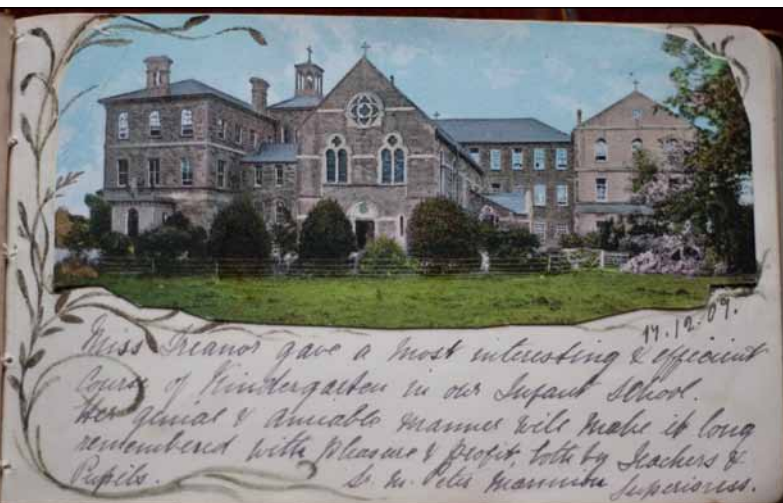 17.12.09.
Miss Treanor gave a most interesting & efficient
Course of Kindergarten in our Infant School.
Her genial & amiable manner will make it long
remembered with pleasure & profit, both by Teachers &
Pupils.
Sr. M. Peter Superioress.